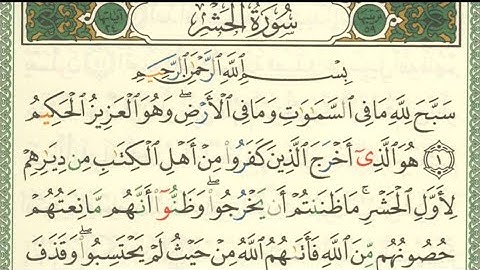 سُورَةُ الْحَشْرِ
بِسْمِ اللَّهِ الرَّحْمَٰنِ الرَّحِيمِ
سَبَّحَ لِلَّهِ مَا فِي السَّمَٰوَٰتِ وَمَا فِي الْأَرْضِ ۖ وَهُوَ الْعَزِيزُ الْحَكِيمُ
١ هُوَ الَّذِىٓ أَخْرَجَ الَّذِينَ كَفَرُوا۟ مِنْ أَهْلِ الْكِتَٰبِ مِن دِيَٰرِهِمْ
لِأَوَّلِ الْحَشْرِ ۚ مَا ظَنَنتُمْ أَن يَخْرُجُوا۟ ۖ وَظَنُّوٓا۟ أَنَّهُم مَّانِعَتُهُمْ
حُصُونُهُم مِّنَ اللَّهِ فَأَتَىٰهُمُ اللَّهُ مِنْ حَيْثُ لَمْ يَحْتَسِبُوا۟ ۖ وَقَذَفَ